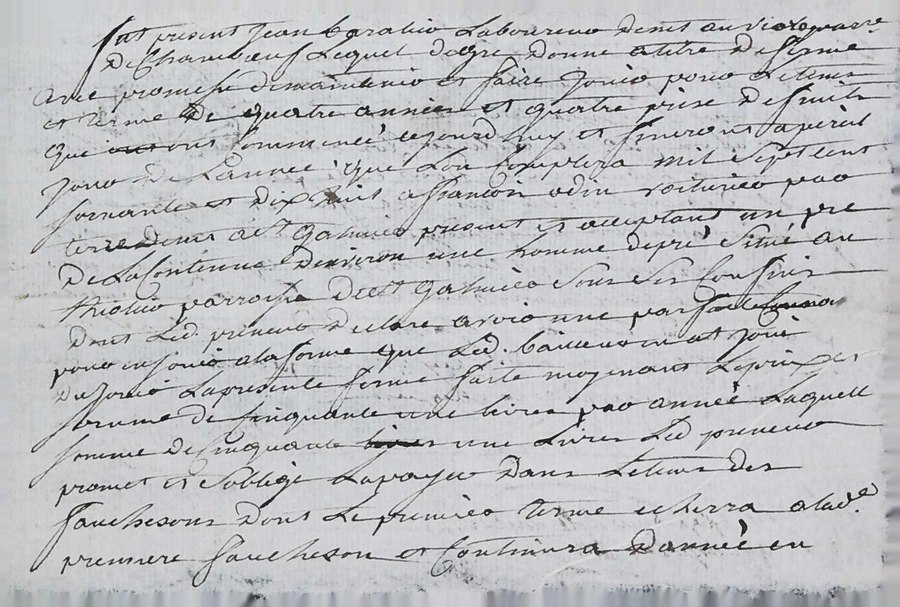 fut present Jean laboureur demt au parre
De Chambœuf Lequel de gre donne a titre De ferme
avec promesse de maintenir et faire jouir pour le tems
et terme De quatre années et quatre prise De fruits
qui ont commencé cejourdhuy et finiront a pareil
jour De Lannée que Lon Comptera mil Sept cent
soixante et Dix huit a françois voiturier par
terre demt a st galmier present et acceptant un pré
De La Contenue Denviron une homme de pré Situé au
parroisse De st galmier Sous Ses Confins
Dont Led. preneur Declare avoir une
pour en jouir a la forme que Led. en at joui
Du jouir La presente ferme faite moyenant Le prix et
somme de Cinquante une livres par année Laquelle
somme de Cinquante une Livres Led preneur
promet et Soblige La payer Dans Le tems des
fauchesons Dont Le premier terme echerra a lad.e
premiere faucheson et Continura D'année en